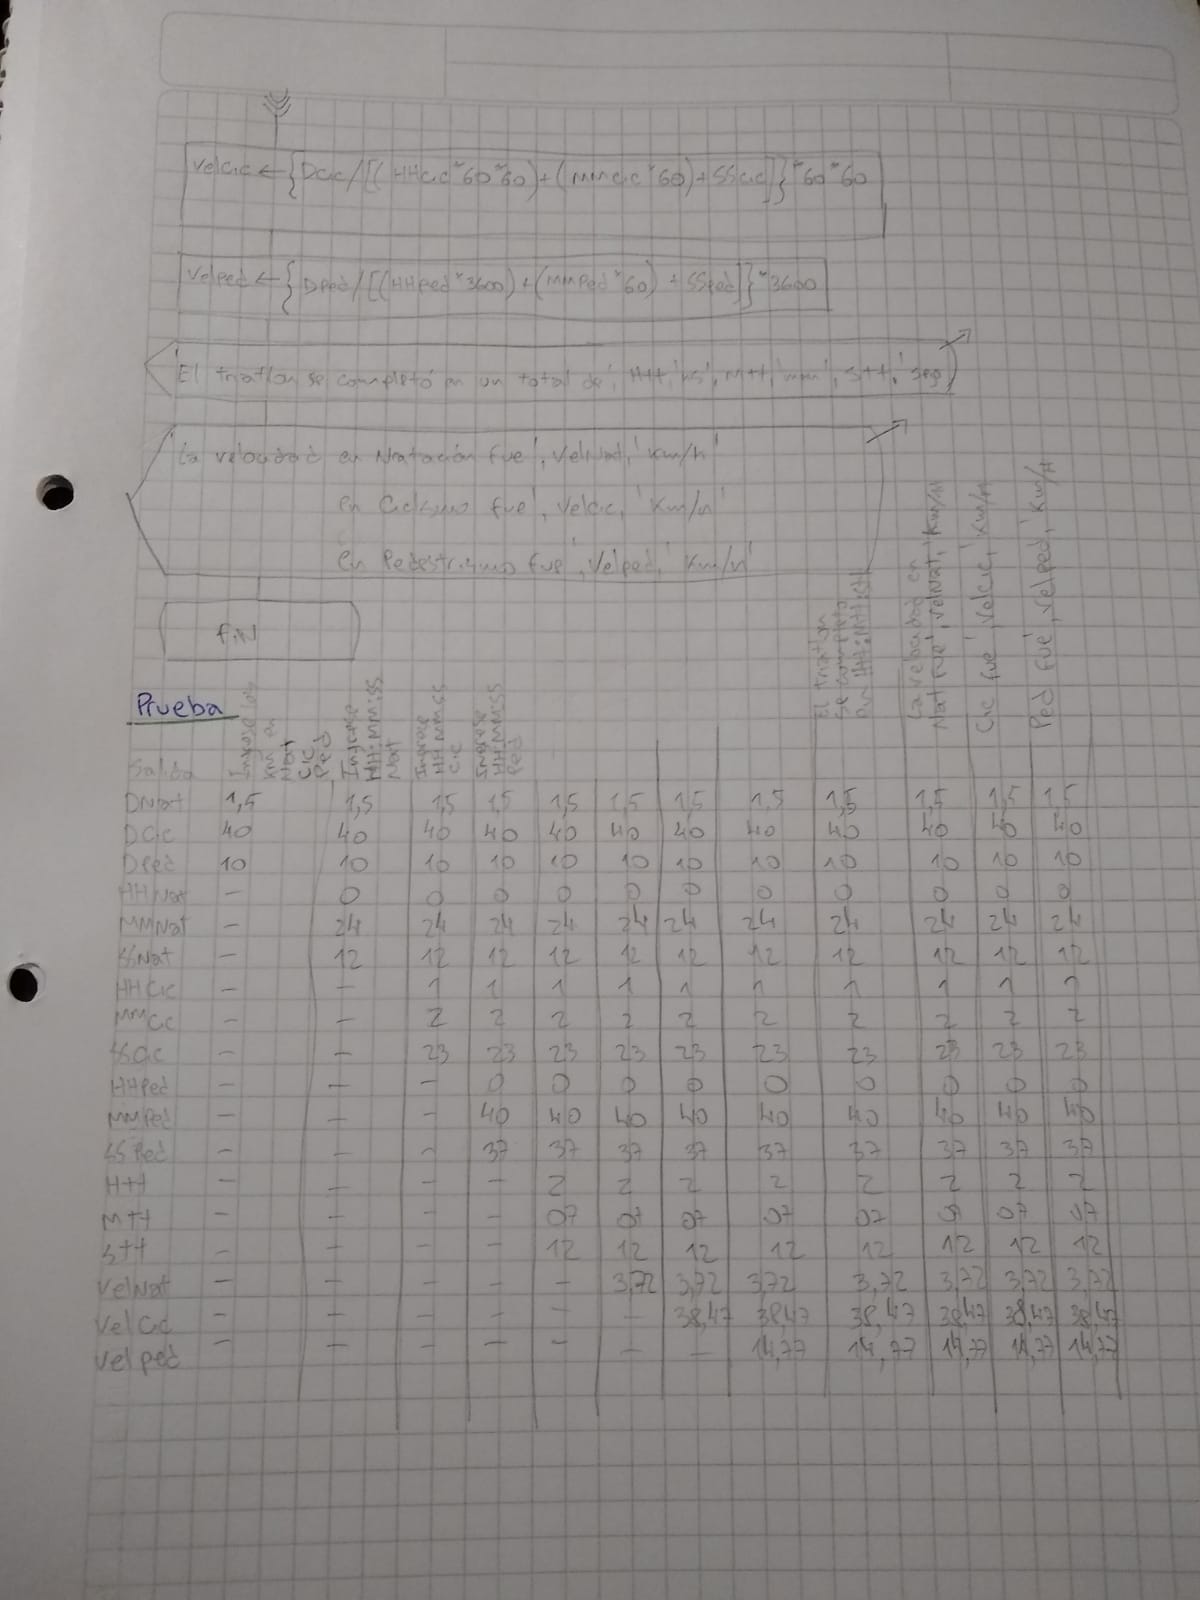 VelCic ← {DCic/[(HHCic*60*60)+(MMCic*60)+SSCic]}*60*60
VelPed ← {DPed/[(HHPed*3600)+(MMPed*60)+SSPed]}*3600
'El triatlon se completó en un total de', HtH,'hs', MtH,'min', StH,'seg'
'La velocidad en Natación fue', VelNat,'Km/h'
en Ciclismo fue', VelCic, 'Km/h'
en Pedestrismo fue', Velped,' Km/h'
FIN
Prueba
Salida
Ingrese los Km en Nat Cic Ped
Ingrese HH:MM:SS Nat
Ingrese HH:MM:SS Cic
Ingrese HH:MM:SS Ped
El triatlon se completó en HtH:MtH:StH
La velocidad en Nat fue', VelNat, 'Km/H
Cic fue', VelCic,' Km/H
Ped fue', Velped,' Km/H
DNat 1,5 1,5 1,5 1,5 1,5 1,5 1,5 1,5 1,5 1,5 1,5 1,5
DCic 40 40 40 40 40 40 40 40 40 40 40 40
DPed 10 10 10 10 10 10 10 10 10 10 10 10
HHNat - 0 0 0 0 0 0 0 0 0 0 0
MMNat - 24 24 24 24 24 24 24 24 24 24 24
SSNat - 12 12 12 12 12 12 12 12 12 12 12
HHCic - - 1 1 1 1 1 1 1 1 1 1
MMCic - - 2 2 2 2 2 2 2 2 2 2
SSCic - - 23 23 23 23 23 23 23 23 23 23
HHPed - - - 0 0 0 0 0 0 0 0 0
MMPed - - - 40 40 40 40 40 40 40 40 40
SSPed - - - 37 37 37 37 37 37 37 37 37
HtH - - - - 2 2 2 2 2 2 2 2
MtH - - - - 07 07 07 07 07 07 07 07
StH - - - - 12 12 12 12 12 12 12 12
VelNat - - - - - 3,72 3,72 3,72 3,72 3,72 3,72 3,72
VelCic - - - - - - 38,47 38,47 38,47 38,47 38,47 38,47
Vel ped - - - - - - - 14,77 14,77 14,77 14,77 14,77